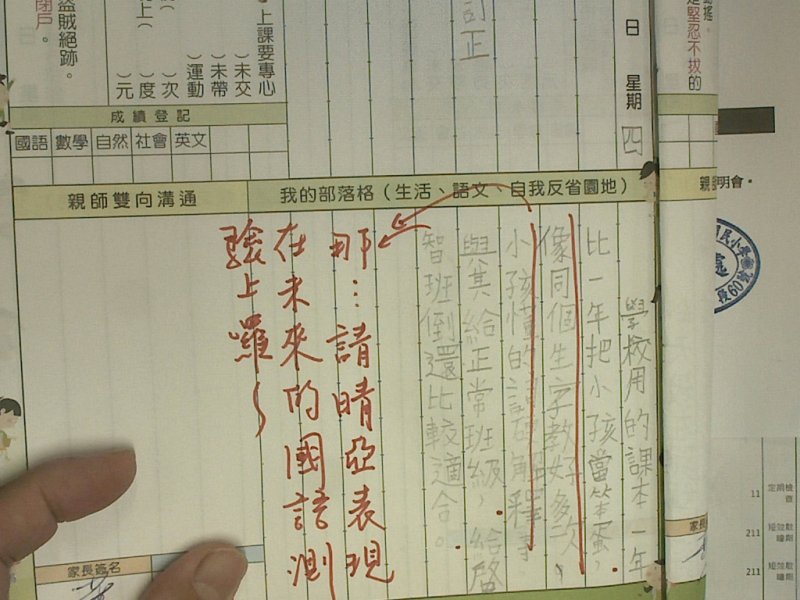 動搖。
是堅忍不拔的
盜賊絕跡。
閉戶。
上課要專心
)未交
)未帶
)運動
)次
)度
)元
訂正
日 星期 四
成績登記
國語 數學 自然 社會 英文
親師雙向溝通
我的部落格(生活、語文、自我反省園地)
學校用的課本一年
比一年把小孩當笨蛋,
像同個生字教好多次,
小孩懂的詞解釋等
與其給正常班級,給啓
智班倒還比較適合。
那…請晴亞表現
在未來的國語測
驗上囉~
家長簽名
家長
明會。
民小學
段60號
11 定期檢查
211
211